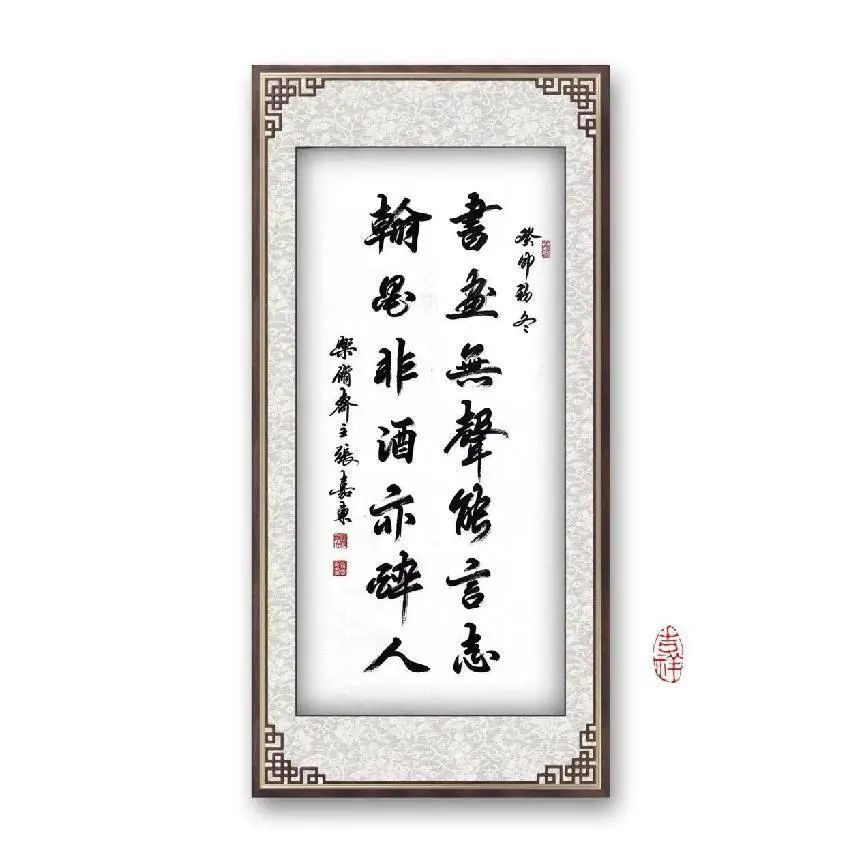 癸卯
冬
書畫無聲能言志
翰墨非酒亦醉人
齋主張嘉東
吉祥